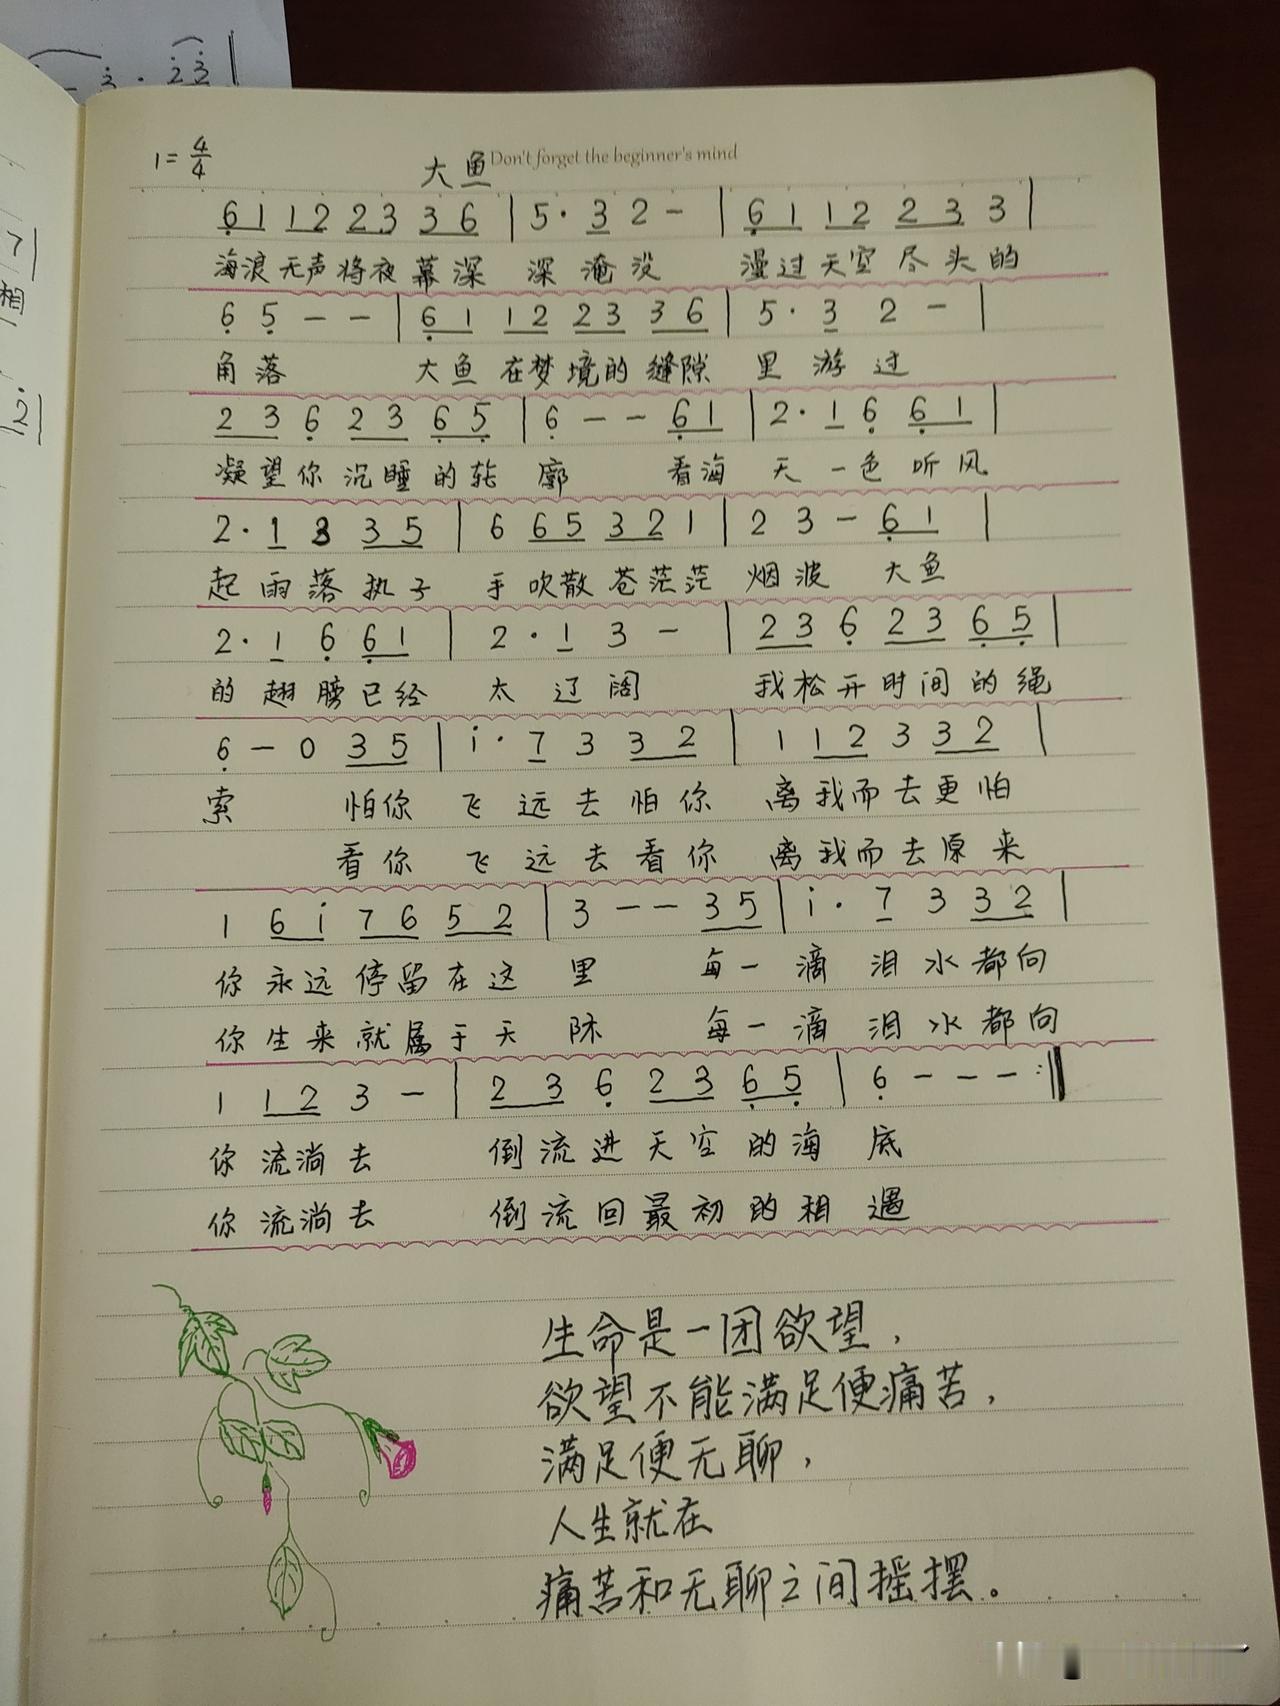 1= 4/4
大鱼 Don't forget the beginner's mind
6̣1 12 23 36 | 5· 3 2 - | 6̣1 12 23 3 |
海浪无声将夜幕深 深淹没 漫过天空尽头的
6̣ 5̣ - - | 6̣1 12 23 36 | 5· 3 2 - |
角落 大鱼在梦境的缝隙 里游过
23 6̣ 23 6̣5̣ | 6̣ - - 6̣1 | 2· 1 6̣ 6̣1 |
凝望你沉睡的轮 廓 看海 天一色听风
2· 1 3 35 | 6 65 32 1 | 2 3 - 6̣1 |
起雨落执子 手吹散苍茫茫 烟波 大鱼
2· 1 6̣ 6̣1 | 2· 1 3 - | 23 6̣ 23 6̣5̣ |
的翅膀已经 太辽阔 我松开时间的绳
6̣ - 0 35 | i· 7 3 32 | 1 12 3 32 |
索 怕你 飞远去怕你 离我而去更怕
看你 飞远去看你 离我而去原来
1 6i 76 52 | 3 - - 35 | i· 7 3 32 |
你永远停留在这 里 每一滴泪水都向
你生来就属于天 际 每一滴泪水都向
1 12 3 - | 23 6̣ 23 6̣5̣ | 6̣ - - - :‖
你流淌去 倒流进天空的海 底
你流淌去 倒流回最初的相 遇
生命是一团欲望，
欲望不能满足便痛苦，
满足便无聊，
人生就在
痛苦和无聊之间摇摆。
7|
相
2|